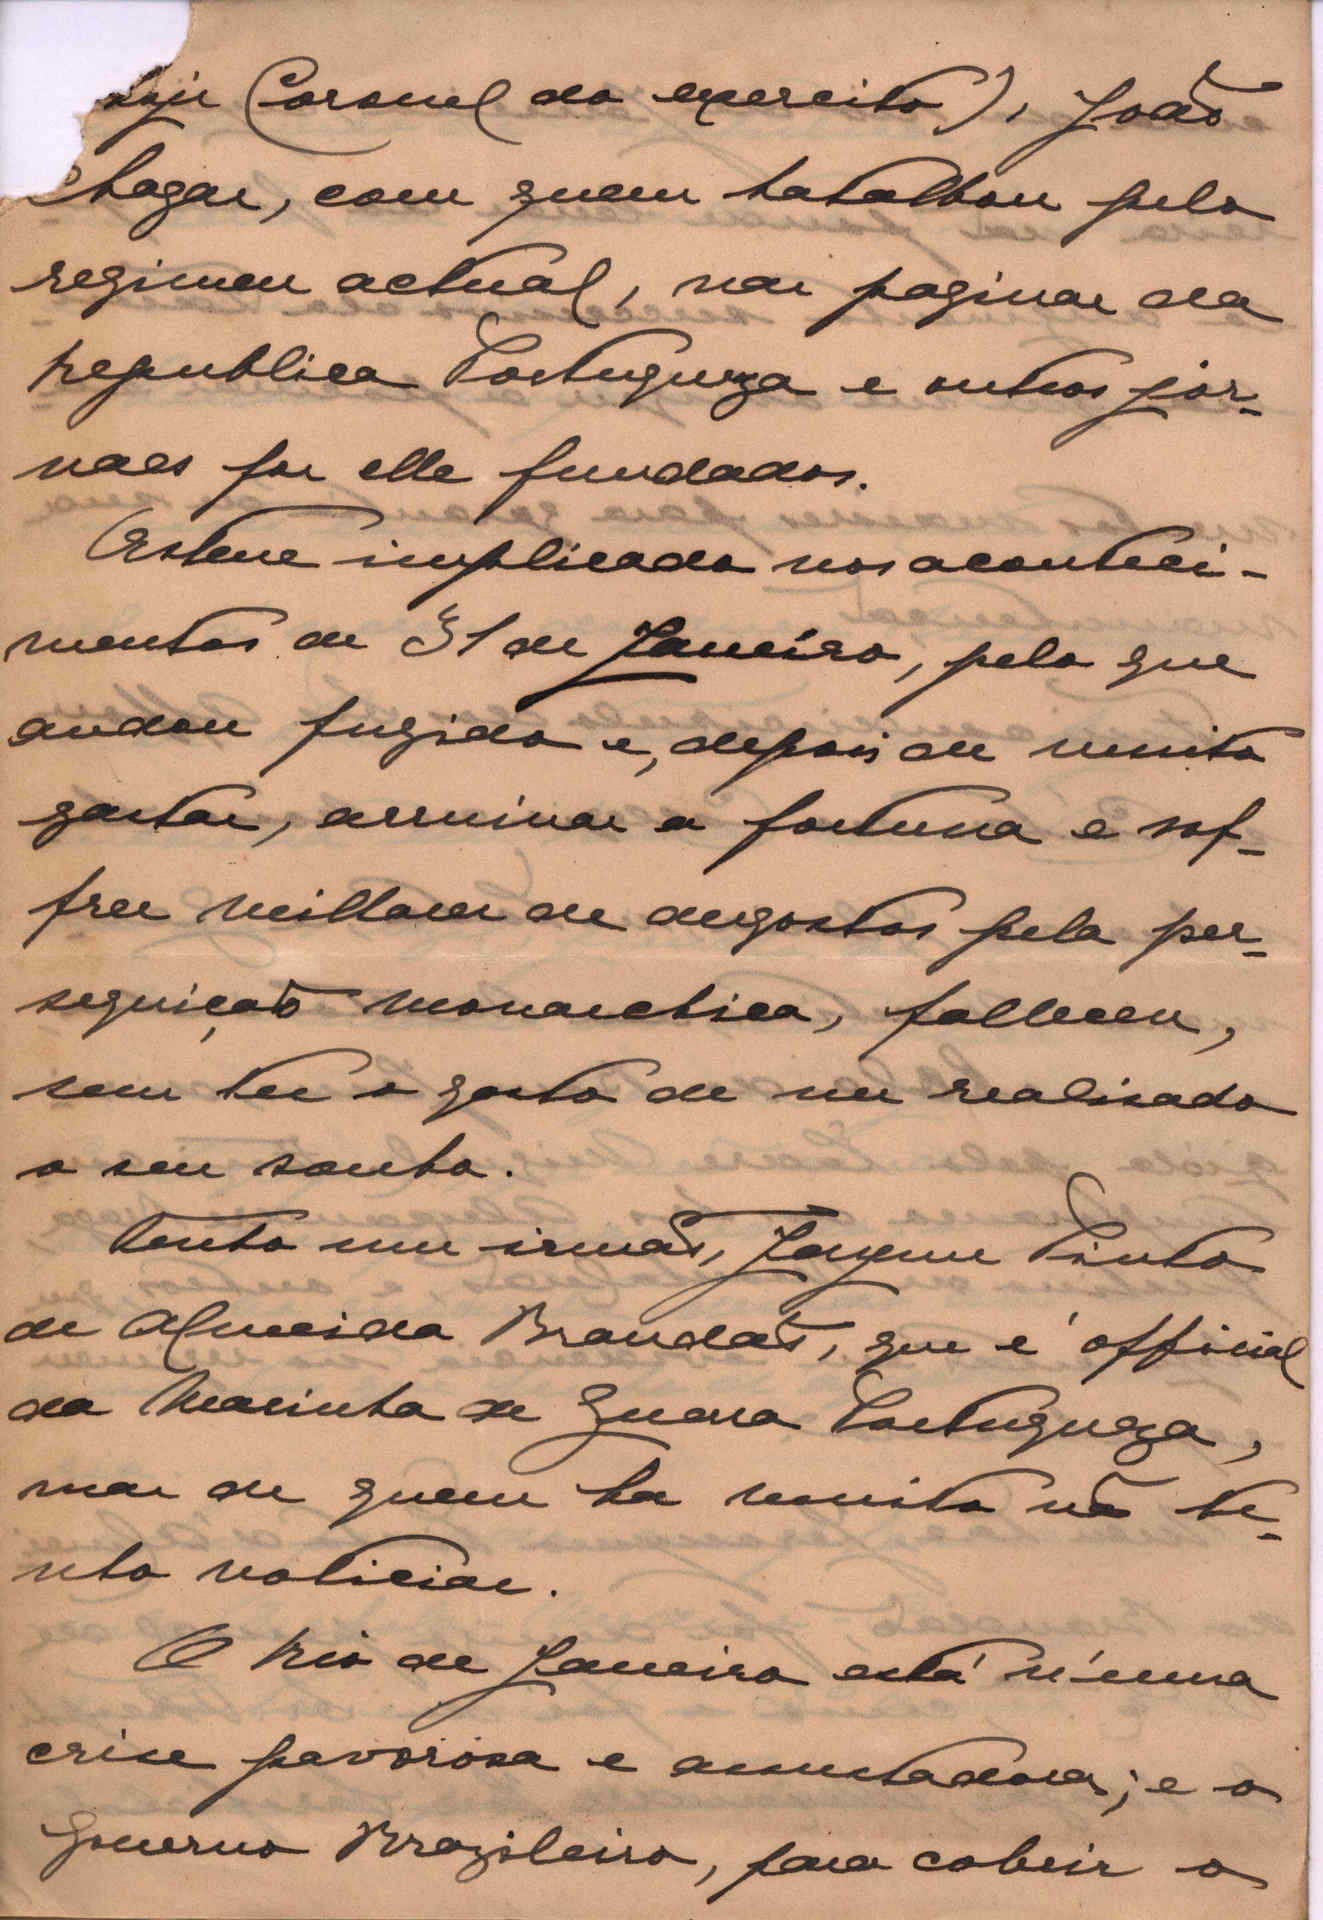 hoje Coronel do exercito), João
Chagas, com quem batalhou pelo
regimen actual, nas paginas da
Republica Portugueza e outros jor-
naes por elle fundados.
Esteve implicado nos aconteci-
mentos de 31 de Janeiro, pelo que
andou fugido e, depois de muito
gastar, arruinar a fortuna e sof-
frer milhares de desgostos pela per-
seguição monarchica, falleceu,
sem ter o gosto de ver realisado
o seu sonho.
Tenho um irmão, Jayme Pinto
de Almeida Brandão, que é official
da Marinha de Guerra Portugueza,
mas de quem ha muito não te-
nho noticias.
O Rio de Janeiro está n'uma
crise pavorosa e assustadora; e o
Governo Brazileiro, para cobrir o